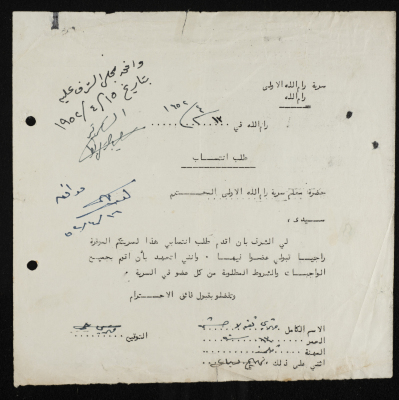 سرية رام الله الاولى
رام الله
وافق مجلس الشرف عليه
بتاريخ ١٥/٤/١٩٥٢
رام الله في ١٣/٤/١٩٥٢
طلب انتساب
حضرة معلم سرية رام الله الاولى المحترم
سيدي ،
لي الشرف بان اقدم طلب انتمائي هذا لسريتكم الموقرة
راجيا قبولي عضوا فيها . وانني اتعهد بأن اقوم بجميع
الواجبات والشروط المطلوبة من كل عضو في السرية .
وتفضلوا بقبول فائق الاحترام
موافق
الاسم الكامل
العمر
المهنة
اثني على ذلك
التوقيع